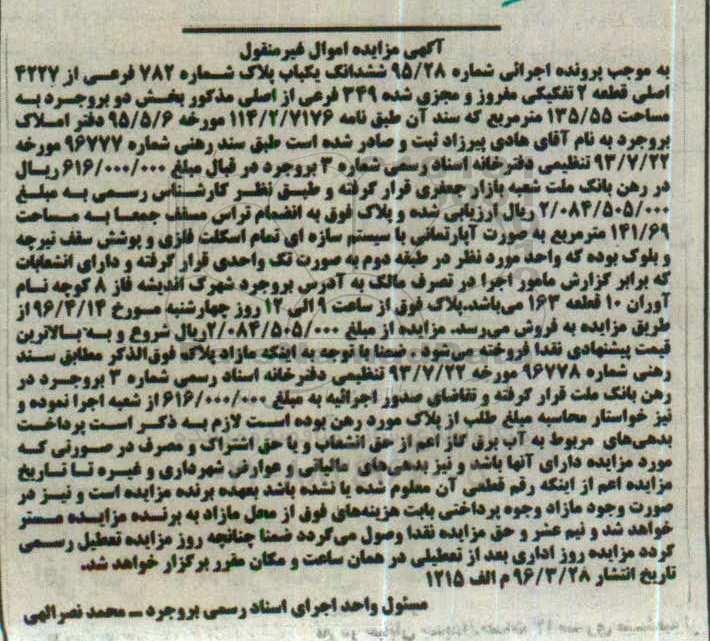 آگهی مزایده اموال غیرمنقول
به موجب پرونده اجرائی شماره ۹۵/۲۸ ششدانگ یکباب پلاک شماره ۷۸۲ فرعی از ۴۲۲۷
اصلی قطعه ۲ تفکیکی مفروز و مجزی شده ۳۴۹ فرعی از اصلی مذکور بخش دو بروجرد به
مساحت ۱۳۵/۵۵ مترمربع که سند آن طبق نامه ۱۱۴/۲/۷۱۷۶ مورخه ۹۵/۵/۶ دفتر املاک
بروجرد به نام آقای هادی پیرزاد ثبت و صادر شده است طبق سند رهنی شماره ۹۶۷۷۷ مورخه
۹۳/۷/۲۲ تنظیمی دفترخانه اسناد رسمی شماره ۳ بروجرد در قبال مبلغ ۶۱۶/۰۰۰/۰۰۰ ریال
در رهن بانک ملت شعبه بازار جعفری قرار گرفته و طبق نظر کارشناس رسمی به مبلغ
۲/۰۸۴/۵۰۵/۰۰۰ ریال ارزیابی شده و پلاک فوق به انضمام تراس مسقف جمعا به مساحت
۱۴۱/۶۹ مترمربع به صورت آپارتمانی با سیستم سازه ای تمام اسکلت فلزی و پوشش سقف تیرچه
و بلوک بوده که واحد مورد نظر در طبقه دوم به صورت تک واحدی قرار گرفته و دارای انشعابات
که برابر گزارش مامور اجرا در تصرف مالک به آدرس بروجرد شهرک اندیشه فاز ۸ کوچه نام
آوران ۱۰ قطعه ۱۶۳ می‌باشد.پلاک فوق از ساعت ۹ الی ۱۲ روز چهارشنبه مورخ ۹۶/۴/۱۴ از
طریق مزایده به فروش می‌رسد. مزایده از مبلغ ۲/۰۸۴/۵۰۵/۰۰۰ ریال شروع و به بالاترین
قیمت پیشنهادی نقدا فروخته می‌شود . ضمنا با توجه به اینکه مازاد پلاک فوق‌الذکر مطابق سند
رهنی شماره ۹۶۷۷۸ مورخه ۹۳/۷/۲۲ تنظیمی دفترخانه اسناد رسمی شماره ۳ بروجرد در
رهن بانک ملت قرار گرفته و تقاضای صدور اجرائیه به مبلغ ۶۱۶/۰۰۰/۰۰۰ از شعبه اجرا نموده و
نیز خواستار محاسبه مبلغ طلب از پلاک مورد رهن بوده است لازم به ذکر است پرداخت
بدهی‌های مربوط به آب برق گاز اعم از حق انشعاب و یا حق اشتراک و مصرف در صورتی که
مورد مزایده دارای آنها باشد و نیز بدهی‌های مالیاتی و عوارض شهرداری و غیره تا تاریخ
مزایده اعم از اینکه رقم قطعی آن معلوم شده یا نشده باشد بعهده برنده مزایده است و نیز در
صورت وجود مازاد وجوه پرداختی بابت هزینه‌های فوق از محل مازاد به برنده مزایده مستر
خواهد شد و نیم عشر و حق مزایده نقدا وصول می‌گردد ضمنا چنانچه روز مزایده تعطیل رسمی
گردد مزایده روز اداری بعد از تعطیلی در همان ساعت و مکان مقرر برگزار خواهد شد.
تاریخ انتشار ۹۶/۳/۲۸ م الف ۱۲۱۵
مسئول واحد اجرای اسناد رسمی بروجرد – محمد نصرالهی